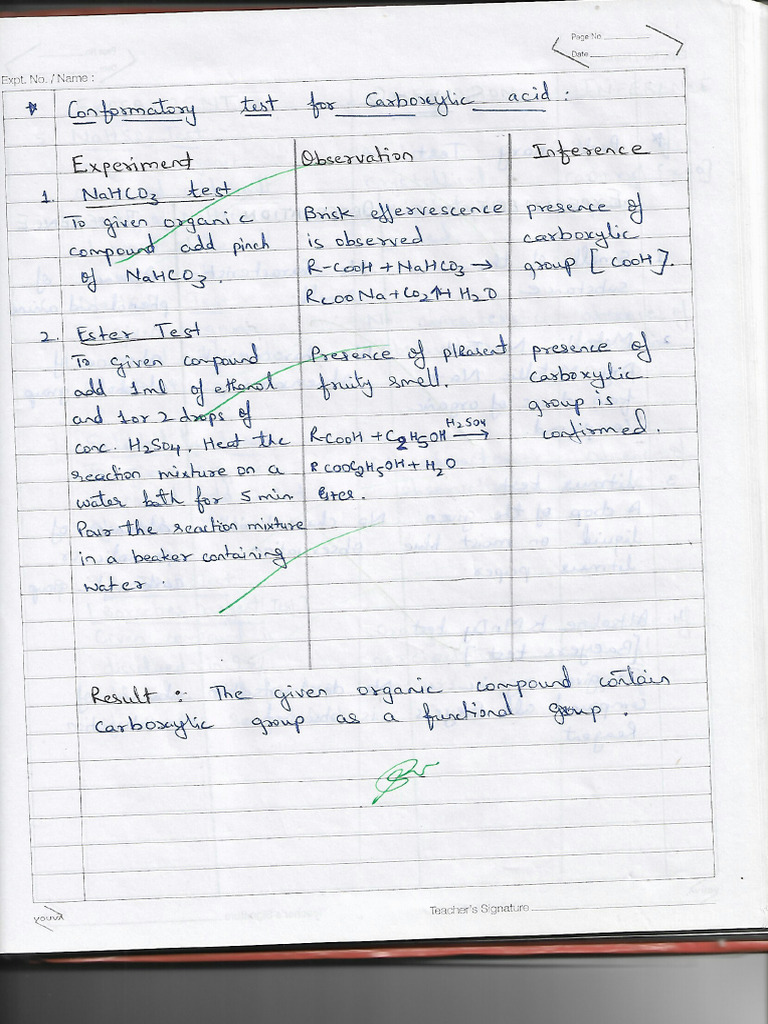 Page No
Date
Expt. No. / Name :
* Conformatory test for Carboxylic acid :
Experiment
Observation
Inference
1. NaHCO3 test
To given organic
compound add pinch
of NaHCO3.
Brisk effervescence
is observed
R-COOH + NaHCO3 →
RCOO Na + CO2↑ + H2O
presence of
carboxylic
group [COOH].
2. Ester Test
To given compound
add 1ml of ethanol
and 1 or 2 drops of
conc. H2SO4. Heat the
reaction mixture on a
water bath for 5 min
Pour the reaction mixture
in a beaker containing
water.
Presence of pleasent
fruity smell.
R-COOH + C2H5OH H2SO4 →
R COOC2H5OH + H2O
Ester.
presence of
carboxylic
group is
confirmed.
Result :- The given organic compound contain
carboxylic group as a functional group.
Teacher's Signature
youva